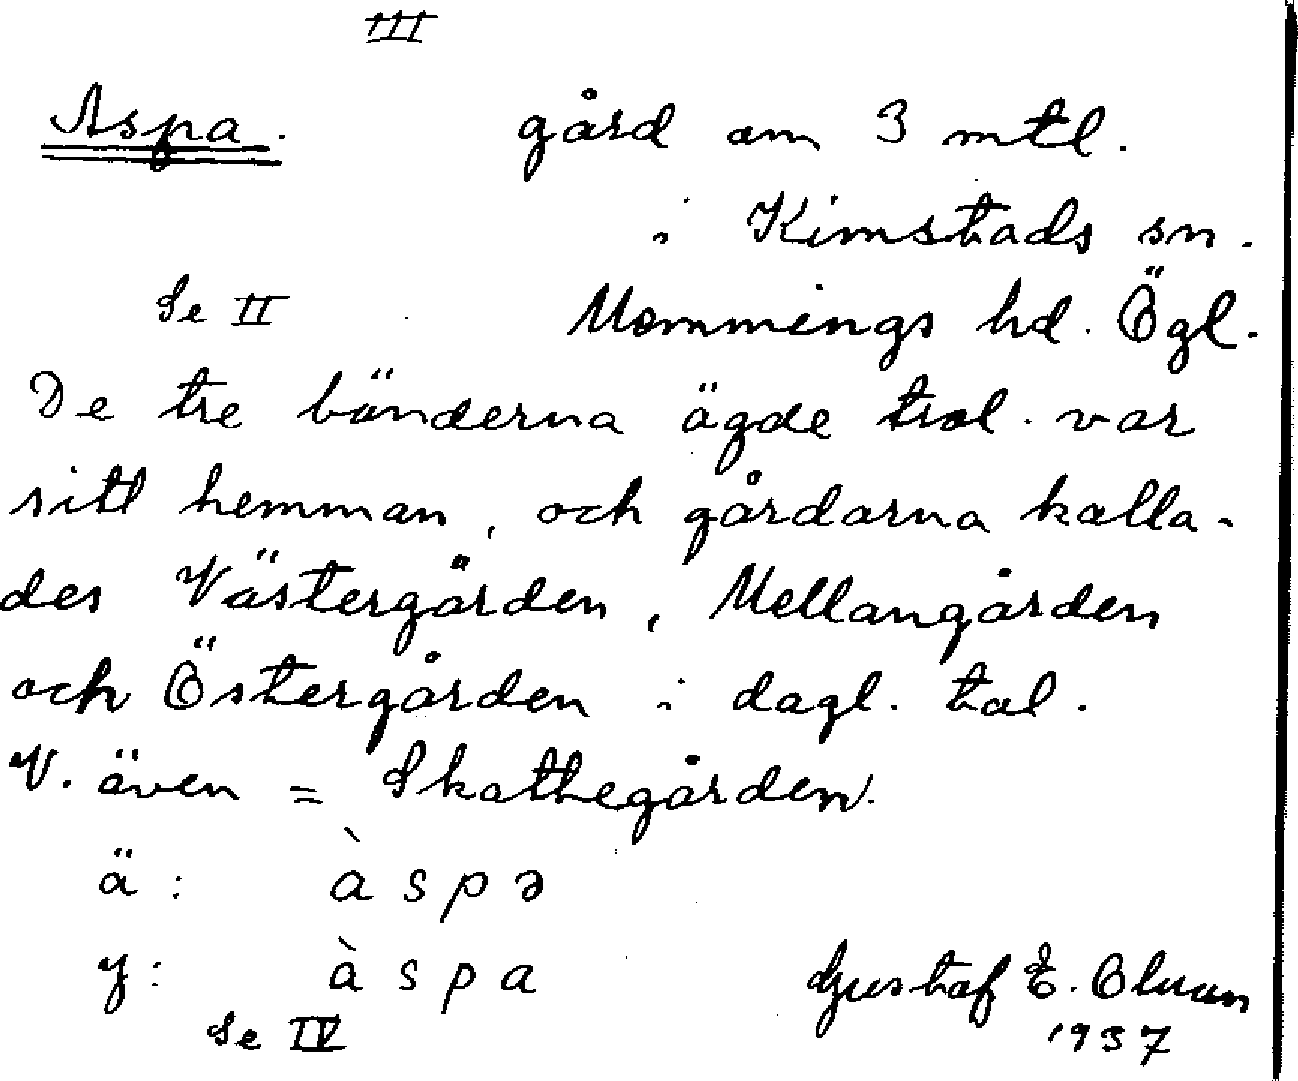 III
Aspa. gård om 3 mtl.
i Kimstads sn.
Se II Memmings hd. Ögl.
De tre bönderna ägde trol. var
sitt hemman, och gårdarna kalla-
des Västergården, Mellangården
och Östergården i dagl. tal.
V. även = Skattegården.
ä: àspə
y: àspa Gustaf E.
Se IV 1937